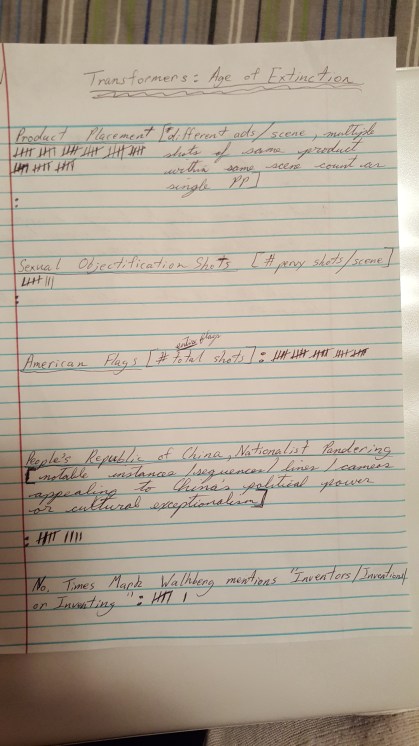 Transformers: Age of Extinction
Product Placement [*different ads/scene, multiple
shots of same product
within same scene count as
single PP]
:
Sexual Objectification Shots [# pervy shots/scene]
:
entire flags
American Flags [# total shots] :
People's Republic of China, Nationalist Pandering
[notable instances/sequences/lines/cameos
appealing to China's political power
or cultural exceptionalism]
:
No. Times Mark Walhberg mentions "Inventors/Inventions
or Inventing" :